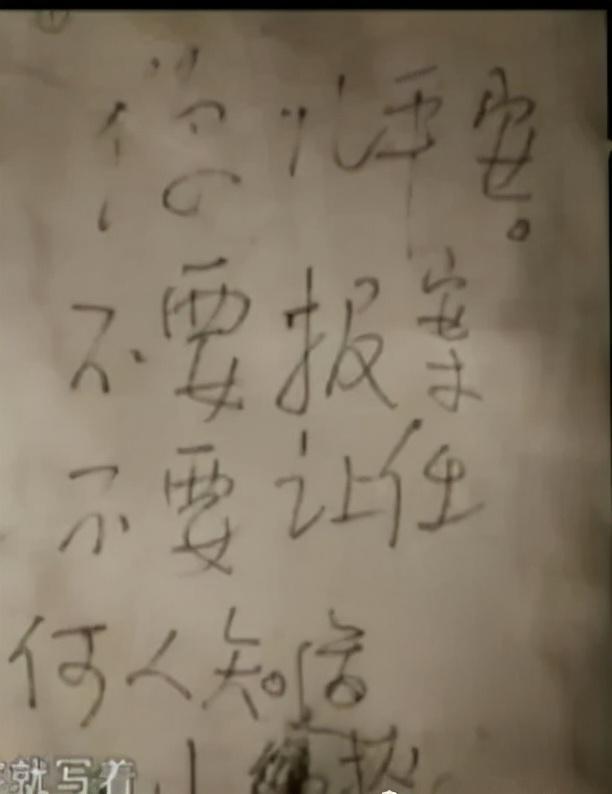 您儿平安。
不要报案
不要让任
何人知。信
就写着